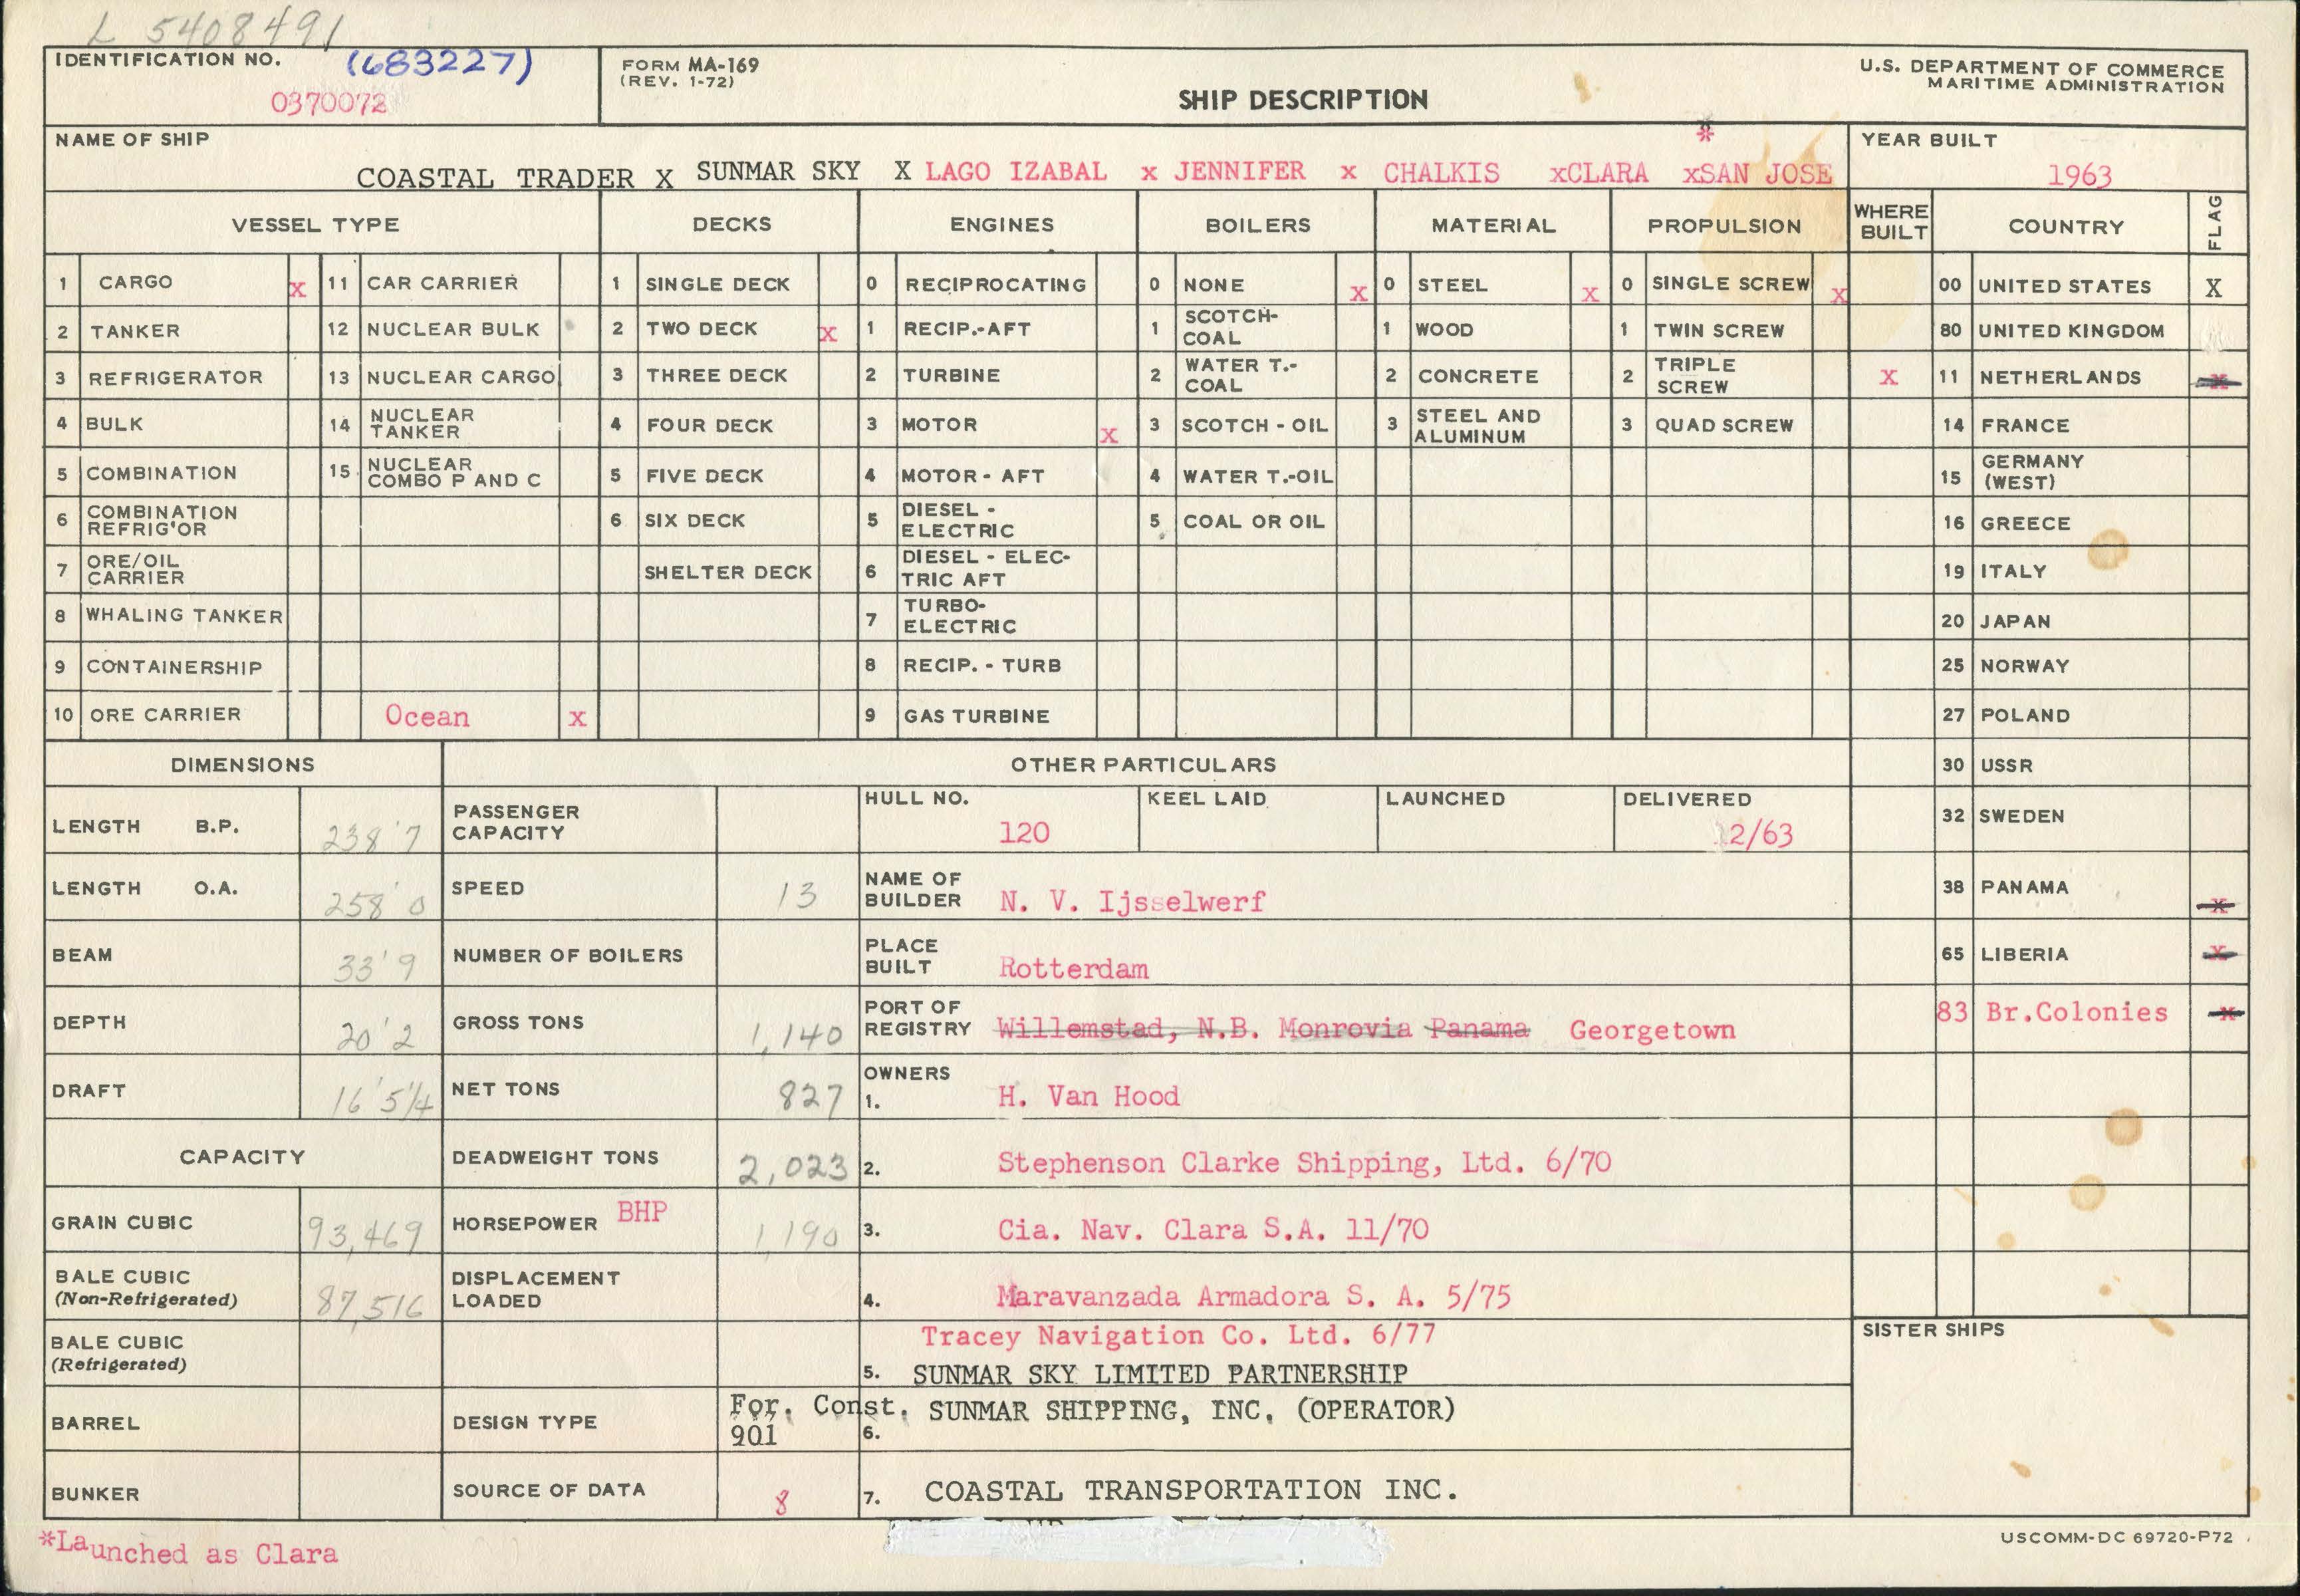 L 5408491
IDENTIFICATION NO. (683227)
0370072
FORM MA-169
(REV. 1-72)
SHIP DESCRIPTION
U.S. DEPARTMENT OF COMMERCE
MARITIME ADMINISTRATION
NAME OF SHIP
*
COASTAL TRADER X SUNMAR SKY X LAGO IZABAL x JENNIFER x CHALKIS xCLARA xSAN JOSE
YEAR BUILT
1963
VESSEL TYPE DECKS ENGINES BOILERS MATERIAL PROPULSION WHERE BUILT COUNTRY FLAG
1 CARGO x 11 CAR CARRIER 1 SINGLE DECK 0 RECIPROCATING 0 NONE x 0 STEEL x 0 SINGLE SCREW x 00 UNITED STATES X
2 TANKER 12 NUCLEAR BULK 2 TWO DECK x 1 RECIP.-AFT 1 SCOTCH-COAL 1 WOOD 1 TWIN SCREW 80 UNITED KINGDOM
3 REFRIGERATOR 13 NUCLEAR CARGO 3 THREE DECK 2 TURBINE 2 WATER T.-COAL 2 CONCRETE 2 TRIPLE SCREW x 11 NETHERLANDS x
4 BULK 14 NUCLEAR TANKER 4 FOUR DECK 3 MOTOR x 3 SCOTCH - OIL 3 STEEL AND ALUMINUM 3 QUAD SCREW 14 FRANCE
5 COMBINATION 15 NUCLEAR COMBO P AND C 5 FIVE DECK 4 MOTOR - AFT 4 WATER T.-OIL 15 GERMANY (WEST)
6 COMBINATION REFRIG'OR 6 SIX DECK 5 DIESEL - ELECTRIC 5 COAL OR OIL 16 GREECE
7 ORE/OIL CARRIER SHELTER DECK 6 DIESEL - ELECTRIC AFT 19 ITALY
8 WHALING TANKER 7 TURBO-ELECTRIC 20 JAPAN
9 CONTAINERSHIP 8 RECIP. - TURB 25 NORWAY
10 ORE CARRIER Ocean x 9 GAS TURBINE 27 POLAND
DIMENSIONS OTHER PARTICULARS 30 USSR
LENGTH B.P. 238'7 PASSENGER CAPACITY HULL NO. 120 KEEL LAID LAUNCHED DELIVERED 12/63 32 SWEDEN
LENGTH O.A. 258'0 SPEED 13 NAME OF BUILDER N. V. Ijsselwerf 38 PANAMA x
BEAM 33'9 NUMBER OF BOILERS PLACE BUILT Rotterdam 65 LIBERIA x
DEPTH 20'2 GROSS TONS 1,140 PORT OF REGISTRY Willemstad, N.B. Monrovia Panama Georgetown 83 Br.Colonies x
DRAFT 16'5 1/4 NET TONS 827 OWNERS 1. H. Van Hood
CAPACITY DEADWEIGHT TONS 2,023 2. Stephenson Clarke Shipping, Ltd. 6/70
GRAIN CUBIC 93,469 HORSEPOWER BHP 1,190 3. Cia. Nav. Clara S.A. 11/70
BALE CUBIC (Non-Refrigerated) 87,516 DISPLACEMENT LOADED 4. Maravanzada Armadora S. A. 5/75
BALE CUBIC (Refrigerated) Tracey Navigation Co. Ltd. 6/77 SISTER SHIPS
5. SUNMAR SKY LIMITED PARTNERSHIP
BARREL DESIGN TYPE For. Const. 901 6. SUNMAR SHIPPING, INC, (OPERATOR)
BUNKER SOURCE OF DATA 8 7. COASTAL TRANSPORTATION INC.
*Launched as Clara
USCOMM-DC 69720-P72